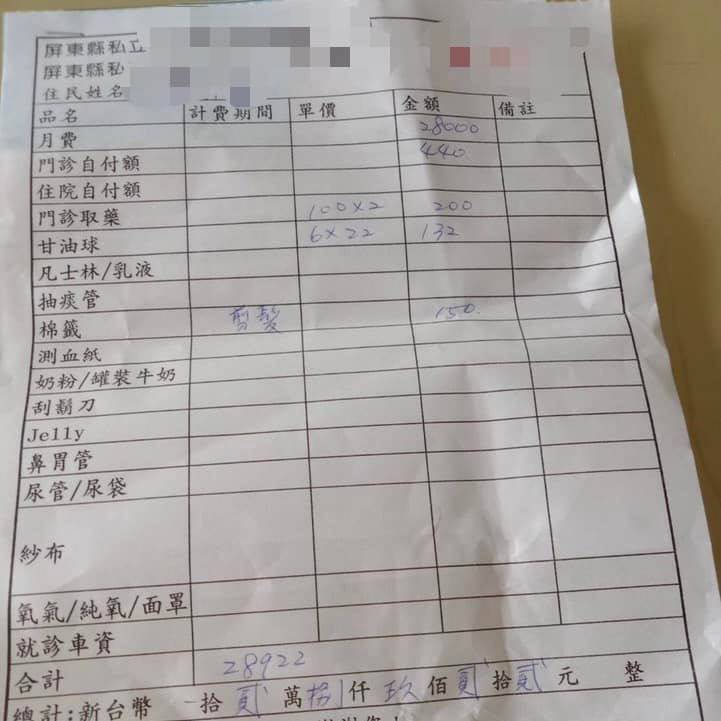 屏東縣私立
屏東縣私
住民姓名
品名 計費期間 單價 金額 備註
月費 28000
門診自付額 440
住院自付額
門診取藥 100×2 200
甘油球 6×22 132
凡士林/乳液
抽痰管
棉籤 剪髮 150
測血紙
奶粉/罐裝牛奶
刮鬍刀
Jelly
鼻胃管
尿管/尿袋
紗布
氧氣/純氧/面罩
就診車資
合計 28922
總計:新台幣 拾 貳 萬 捌 仟 玖 佰 貳 拾 貳 元 整